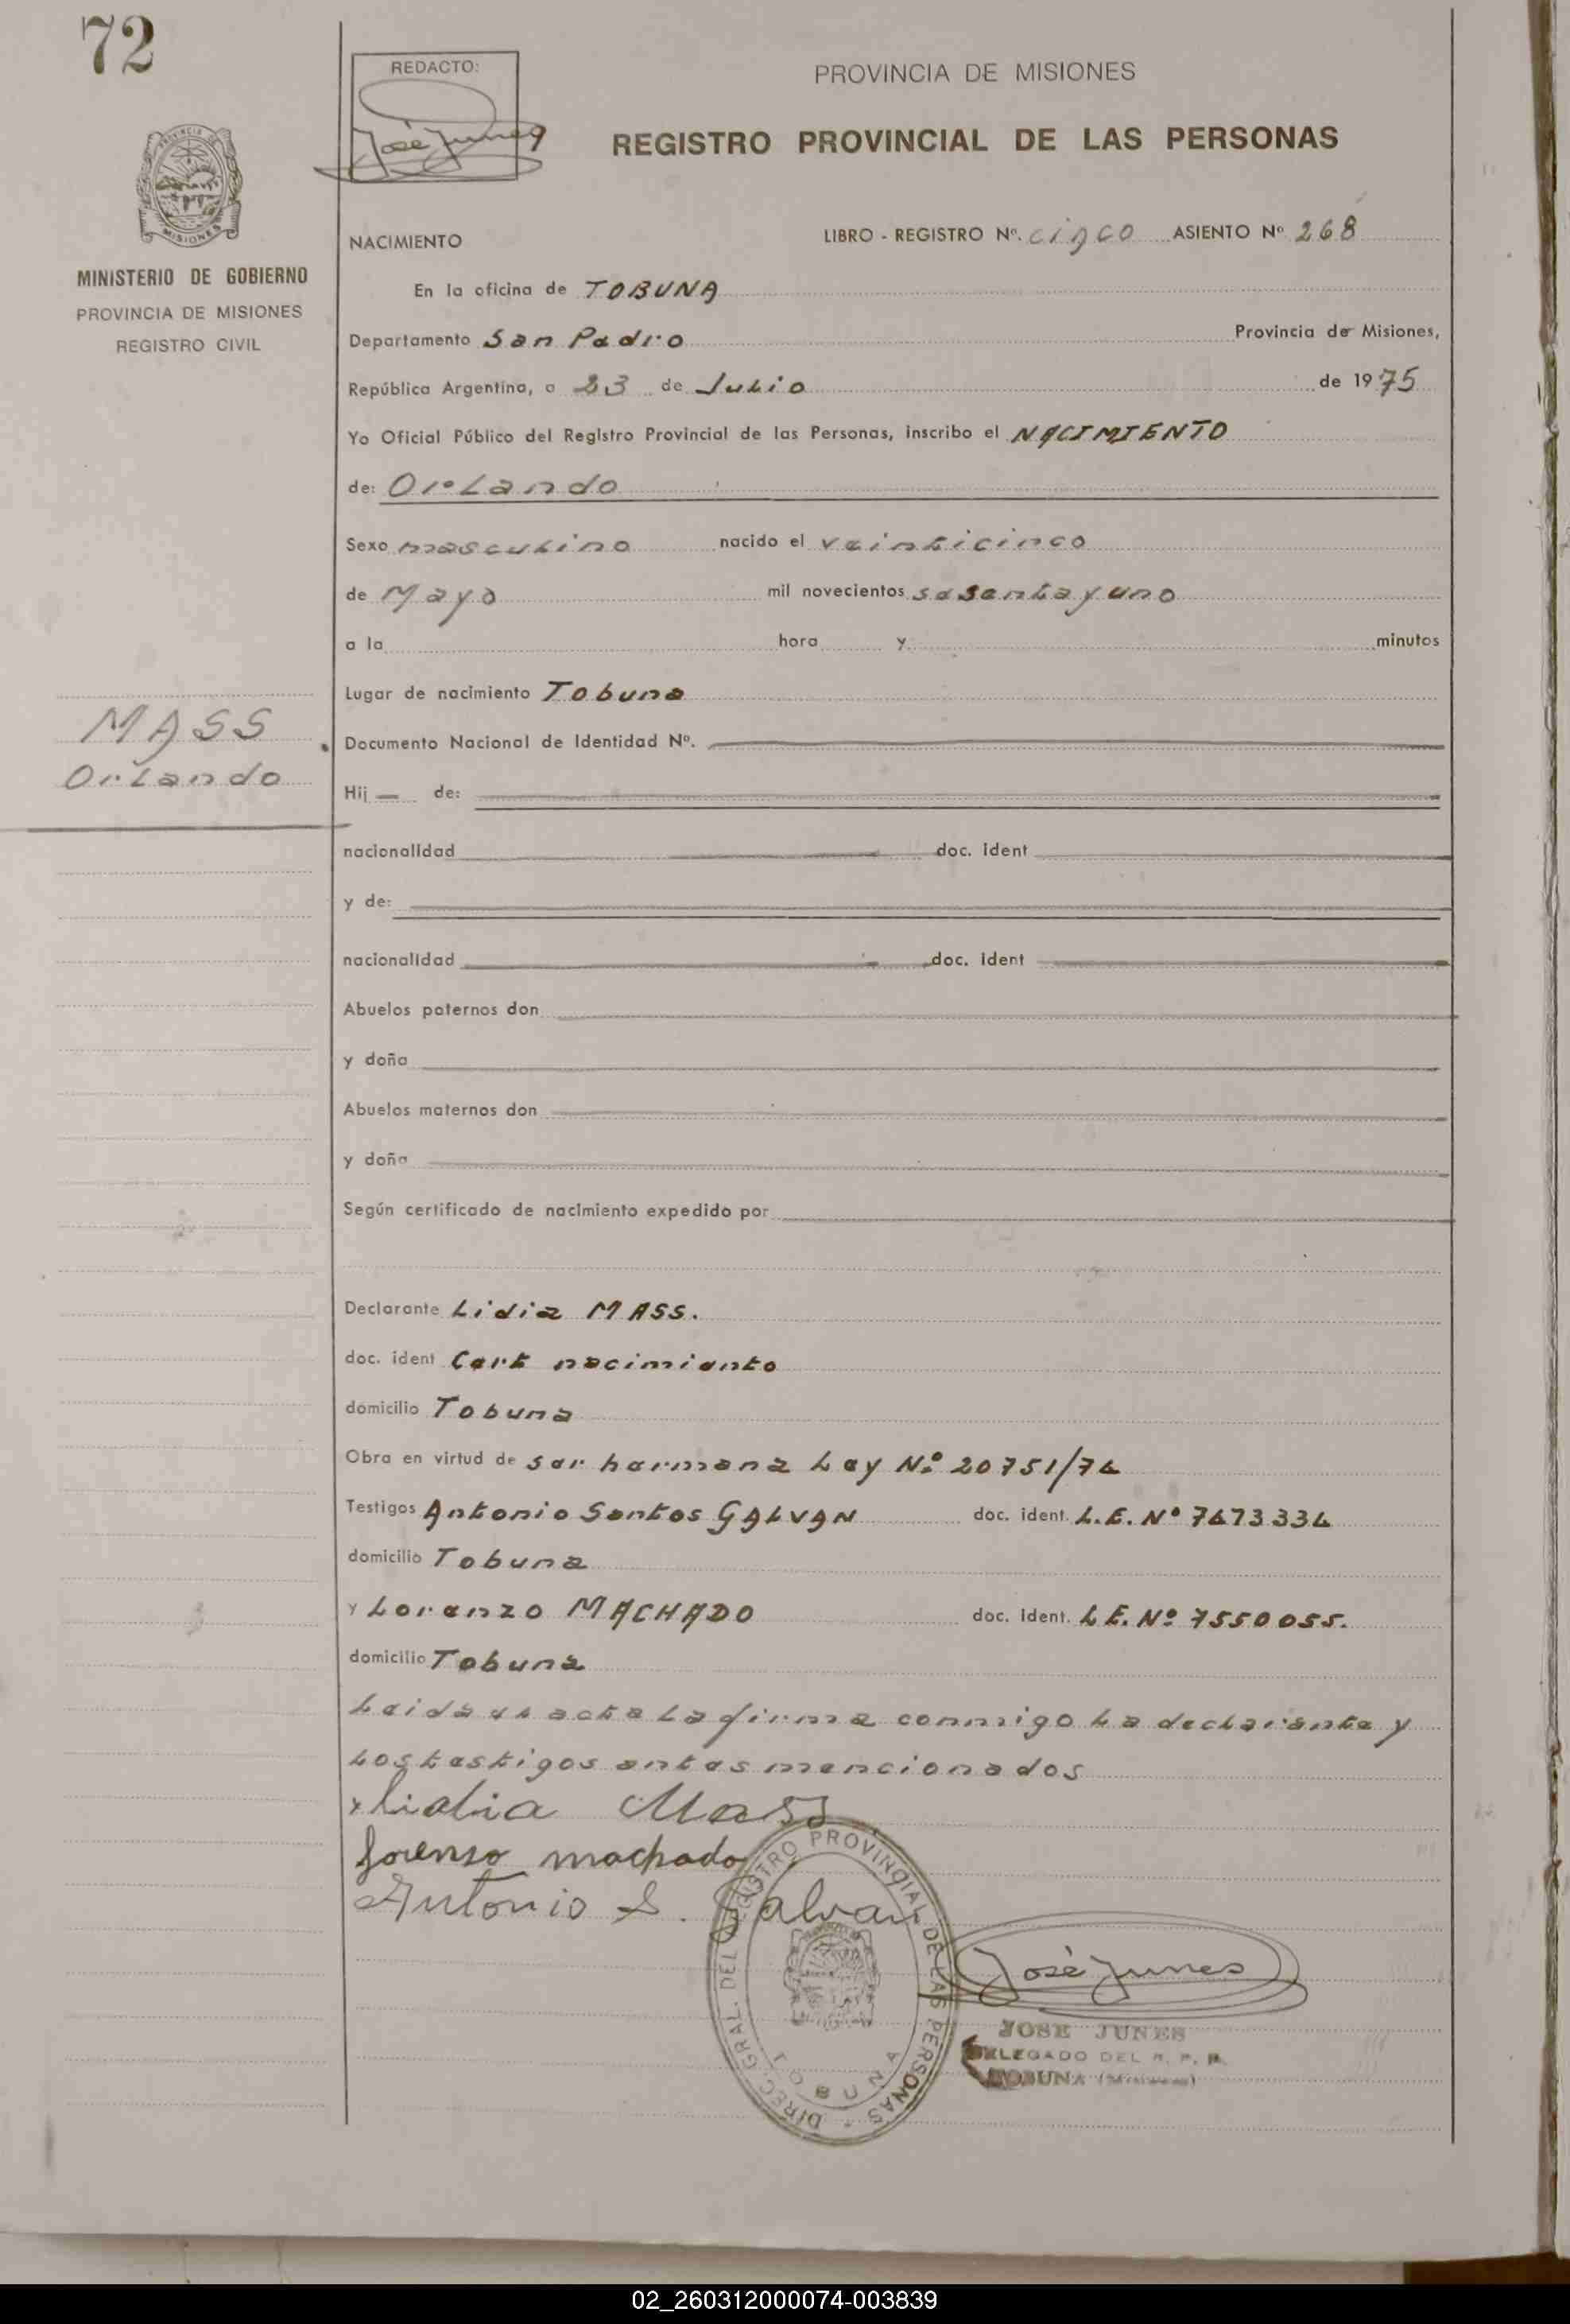 72
REDACTO:
José Junes
PROVINCIA DE MISIONES
REGISTRO PROVINCIAL DE LAS PERSONAS
MISIONES
MINISTERIO DE GOBIERNO
PROVINCIA DE MISIONES
REGISTRO CIVIL
NACIMIENTO
LIBRO - REGISTRO Nº. cinco ASIENTO Nº 268
En la oficina de TOBUNA
Departamento San Pedro Provincia de Misiones,
República Argentina, a 23 de Julio de 1975
Yo Oficial Público del Registro Provincial de las Personas, inscribo el NACIMIENTO
de: Orlando
Sexo masculino nacido el veinticinco
de Mayo mil novecientos sesenta y uno
a la hora y minutos
Lugar de nacimiento Tobuna
MASS
Orlando
Documento Nacional de Identidad Nº.
Hij — de:
nacionalidad doc. ident
y de:
nacionalidad doc. ident
Abuelos paternos don
y doña
Abuelos maternos don
y doña
Según certificado de nacimiento expedido por
Declarante Lidia MASS.
doc. ident Cert nacimiento
domicilio Tobuna
Obra en virtud de ser hermana Ley Nº 20751/74
Testigos Antonio Santos GALVAN doc. ident. L.E. Nº 7473334
domicilio Tobuna
y Lorenzo MACHADO doc. ident. L.E. Nº 7550055.
domicilio Tobuna
Leida el acta la firma conmigo la declarante y
los testigos antes mencionados
x Lidia Mass
Lorenso machado
Antonio S. Galvan
DIREC. GRAL. DEL REGISTRO PROVINCIAL DE LAS PERSONAS
TOBUNA
José Junes
JOSE JUNES
DELEGADO DEL R. P. P.
TOBUNA (Misiones)
02_260312000074-003839